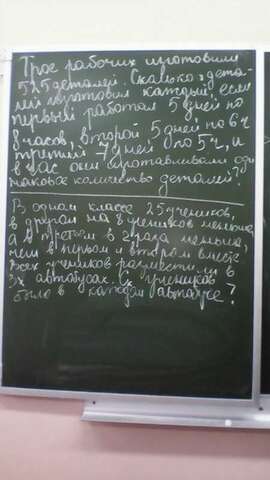 Трое рабочих изготовили
525 деталей. Сколько дета-
лей изготовил каждый, если
первый работал 5 дней по
8 часов, второй 5 дней по 6 ч
третий 7 дней по 5 ч, и
в час они изготавливали оди
наковое количество деталей?
В одном классе 25 учеников,
в другом на 8 учеников меньше,
а в третьем в 2 раза меньше,
чем в первом и втором вместе.
Всех учеников разместили в
3х автобусах. Ск учеников
было в каждом автобусе?